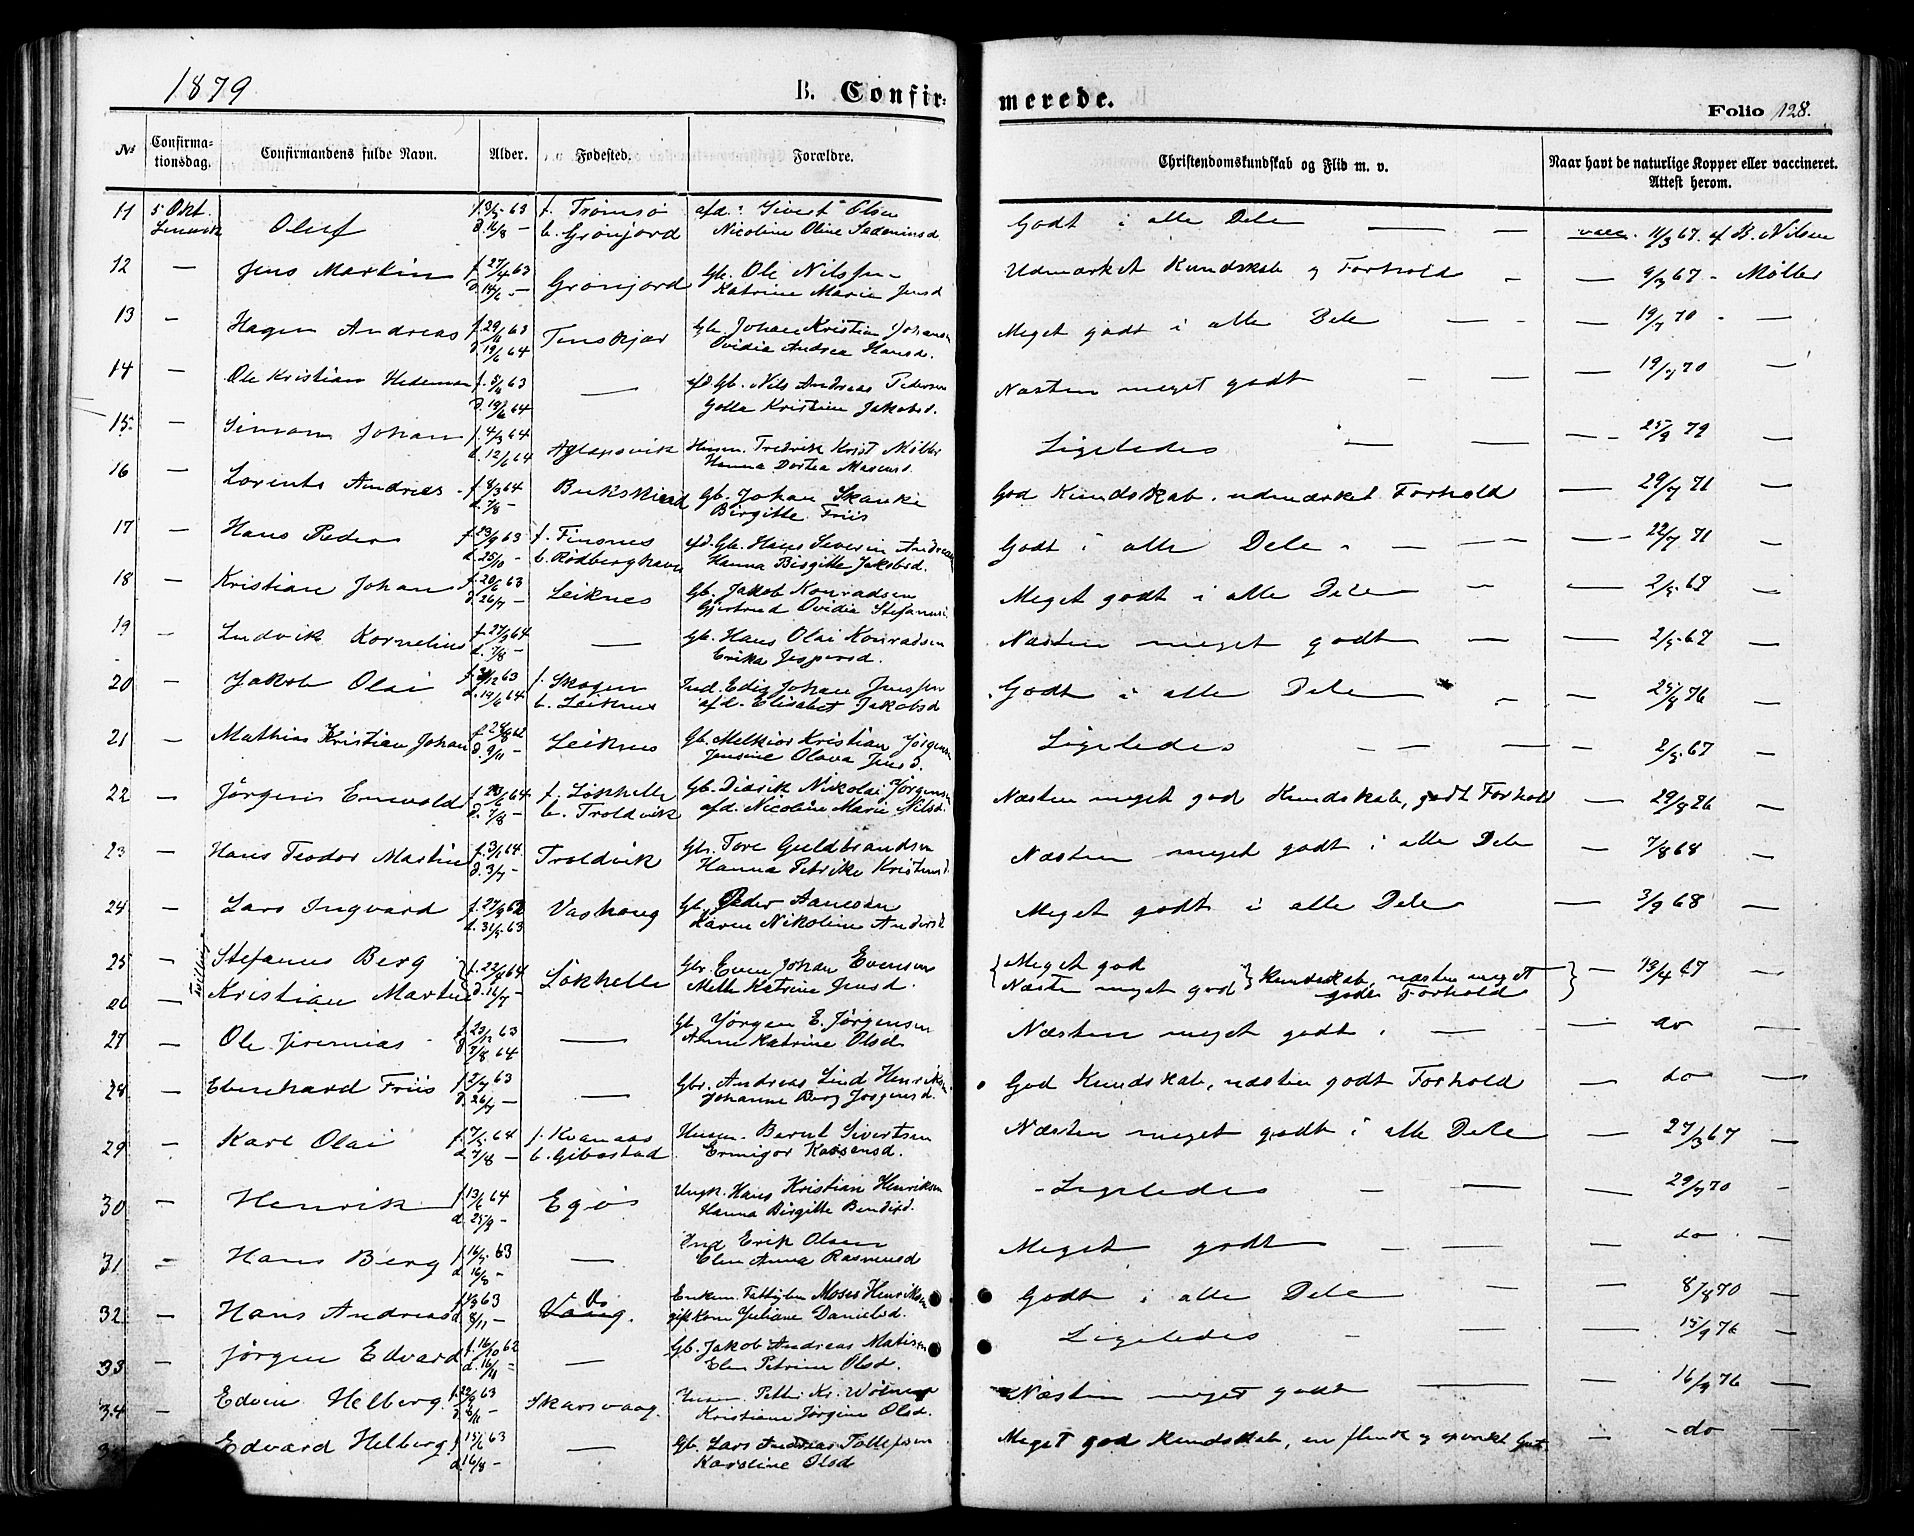 1879
B. Confir-
merede.
Folio 128.
No
Confirma-
tionsdag.
Confirmandens fulde Navn.
Alder.
Fødested.
Forældre.
Christendomskundskab og Flid m. v.
Naar havt de naturlige Kopper eller vaccineret.
Attest herom.
11 5 Okt. f. 3/5 63 f. Tromsø afd. Sivert Olsen
Lenvik Oluf d. 16/8 — b. Grønjord Nicoline Oline Godt i alle Dele — — vacc. 11/3 67. af B. Nilsen
12 — Jens Martin f. 27/4 63 Grønjord Gb. Ole Nilssen Udmærket Kundskab og Forhold — — 9/7 67 - Møller
d. 14/6 — Katrine Marie Jensd
13 — Hagen Andreas f. 29/11 63 Finskjær Gb. Johan Kristian Johansen Meget godt i alle Dele — — — 19/7 70 - —
d. 19/6 64 Ovidia Andrea Hansd.
14 — Ole Kristian Hedeman 63 — afd. Gb. Nils Andreas Pedersen Næsten meget godt — — — 19/7 70 —
d. 19/6 64 Kristine Jakobsd.
15 — Simon Johan f. 4/3 64 Aglapsvik Husm. Fredrik Krist Møller Ligeledes — — — 25/9 79 —
d. 12/6 64 Hanna Dortea
16 — Lorents Andreas f. 8/3 64 Bukskind Gb. Johan Skanke God Kundskab, udmærket Forhold — 29/7 71 —
d. 7/8 — Birgitte Friis
17 — Hans Peder f. 23/9 63 f. Finsnes afd. Gb. Hans Severin Andreasen Godt i alle Dele — — — 22/7 71 —
d. 25/10 — b. Rødberghavn Hanna Birgitte Jakobsd.
18 — Kristian Johan f. 20/6 63 Leiknes Gb. Jakob Konradsen Meget godt i alle Dele — — 2/5 68 —
d. 26/7 — Gjertrud Ovidia
19 — Ludvik Kornelius f. 27/3 64 — Gb. Hans Olai Konradsen Næsten meget godt — — 2/5 67 —
d. 7/8 — Erika Jespersd.
20 — Jakob Olai f. 31/12 63 f. Skogen Ind. Johan Jenssen Godt i alle Dele — — 25/8 76 —
d. 19/6 64 b. Leiknes afd. Elisabet Jakobsd
21 — Mathias Kristian Johan Leiknes Gb. Melkior Kristian Jørgensen Ligeledes — — — — 2/5 67 —
d. 9/11 — Jensine Olava Jensd.
22 — Jørgen Enevold 64 f. Løkhelle Gb. Didrik Nikolai Jørgensen Næsten meget god Kundskab, godt Forhold — 29/8 76 —
d. 7/8 — b. Troldvik afd. Nicoline Marie Nilsd.
23 — Hans Teodor Martin f. 3/1 64 Troldvik Gb. Tore Guldbrandsen Næsten meget godt i alle Dele — 7/8 68 —
d. 3/7 — Hanna Petrike Kristensd
24 — Lars Ingvard f. 27/9 62 Vashaug Gb. Peder Aanesen Meget godt i alle Dele — 3/9 68 —
d. 31/5 63 Karen Nikoline Andersd
25 — Stefanus Berg f. 22/4 64 Løkhelle Gb. Even Johan Evensen Meget god Kundskab, næsten meget — 13/4 67 —
26 Tvillinger Kristian Martin d. 16/7 — Mette Katrine Jensd. Næsten meget god godt Forhold
27 — Ole Jeremias f. 23/12 63 — Gb. Jørgen E. Jørgensen Næsten meget godt — — — do —
d. 7/8 64 Anne Katrine Olsd
28 — Eberhard Friis 63 — Gb. Andreas Lind Henriksen God Kundskab, næsten godt Forhold — do —
d. 26/7 — Johanne Berg Jørgensd.
29 — Karl Olai 64 f. Kvanaas Husm. Bernt Sivertsen Næsten meget godt i alle Dele — 27/3 67 —
d. 7/8 — b. Gibostad Ermigor
30 — Henrik f. 13/6 64 Egøs Ungk. Hans Kristian Henriksen Ligeledes — — — 29/7 70 -
d. 25/9 — Hanna Birgitte Bendiksd.
31 — Hans Berg f. 16/5 63 — Ind Erik Olsen Meget godt — — — do —
d. 16/8 — Elen Anna Rasmusd
32 — Hans Andreas 63 Vang. Enkem. Moses Henriksen Godt i alle Dele — — 8/8 70 —
d. 8/11 — Juliane Danielsd.
33 — Jørgen Edvard f. 16/10 62 — Gb. Jakob Andreas Matisen Ligeledes — — — 15/9 76 —
d. 16/11 — Elen Petrine Olsd.
34 — Edvin Helberg f. 22/9 63 Skarsvaag Husm. Petter Kr. Næsten meget godt — — 16/9 76 —
d. 8/11 — Kristiane Jørgine Olsd.
Edvard Helberg f. 15/6 63 — Gb. Lars Andreas Tollefsen Meget god Kundskab, en flink og Gut — - do —
d. 16/8 — Karoline Olsd